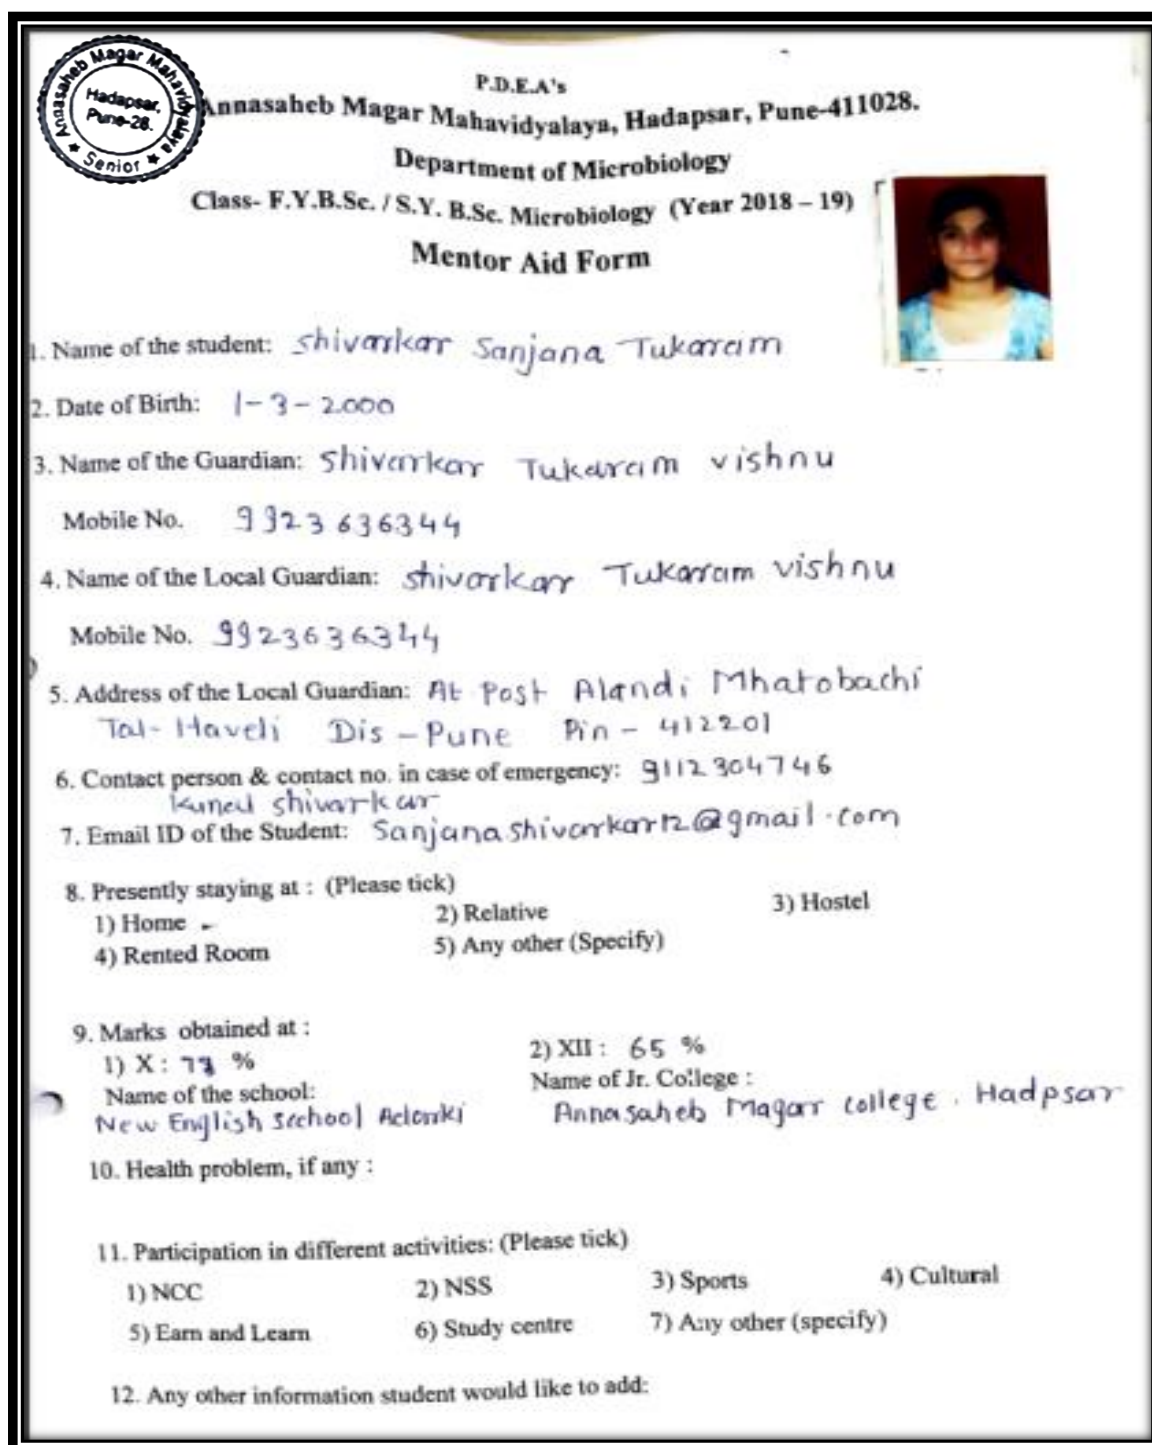 Annasaheb Magar Mahavidyalaya
Hadapsar,
Pune-28.
★ Senior ★
P.D.E.A's
Annasaheb Magar Mahavidyalaya, Hadapsar, Pune-411028.
Department of Microbiology
Class- F.Y.B.Sc. / S.Y. B.Sc. Microbiology (Year 2018 – 19)
Mentor Aid Form
1. Name of the student: Shivarkar Sanjana Tukaram
2. Date of Birth: 1-3-2000
3. Name of the Guardian: Shivarkar Tukaram vishnu
Mobile No. 9923636344
4. Name of the Local Guardian: Shivarkar Tukaram vishnu
Mobile No. 9923636344
5. Address of the Local Guardian: At Post Alandi Mhatobachi
Tal- Haveli Dis – Pune Pin – 412201
6. Contact person & contact no. in case of emergency: 9112304746
Kunal shivarkar
7. Email ID of the Student: Sanjanashivarkar12@gmail.com
8. Presently staying at : (Please tick)
1) Home 2) Relative 3) Hostel
4) Rented Room 5) Any other (Specify)
9. Marks obtained at :
1) X : % 2) XII : 65 %
Name of the school: Name of Jr. College :
New English School Annasaheb Magar college . Hadpsar
10. Health problem, if any :
11. Participation in different activities: (Please tick)
1) NCC 2) NSS 3) Sports 4) Cultural
5) Earn and Learn 6) Study centre 7) Any other (specify)
12. Any other information student would like to add: